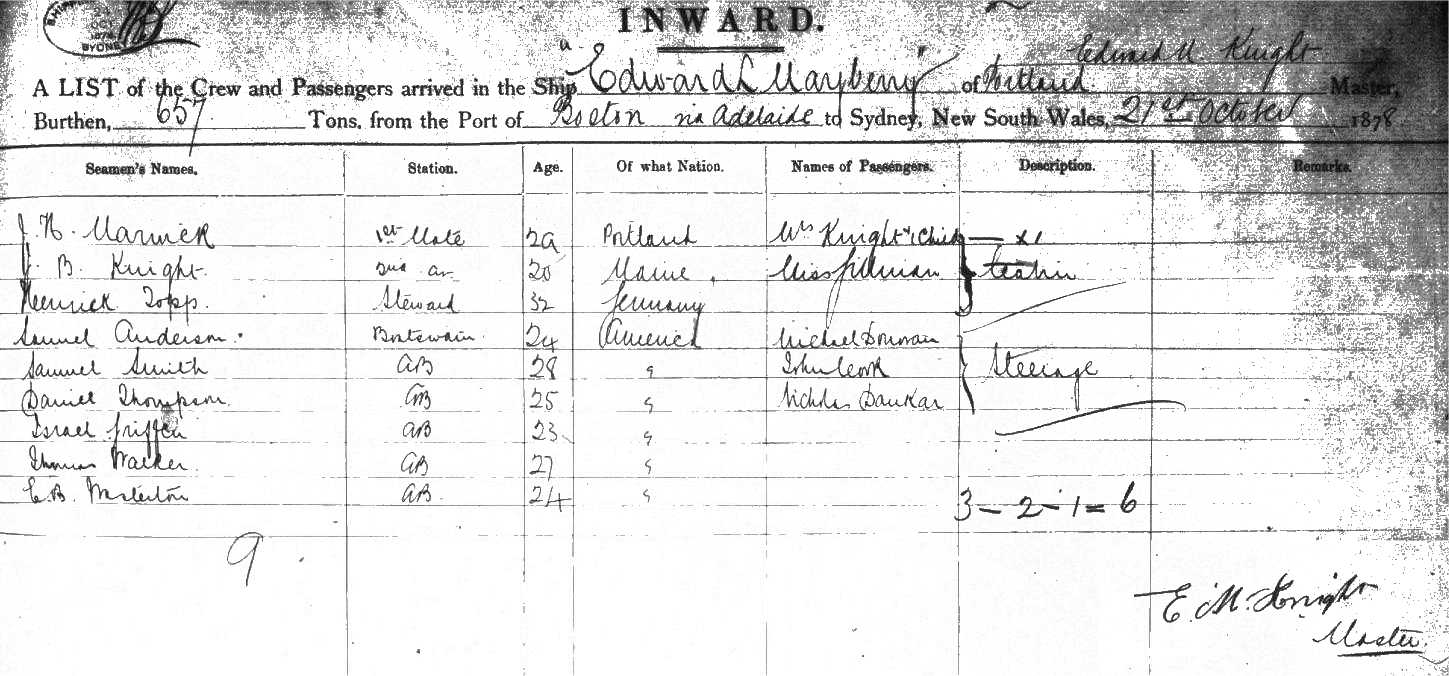 SYDNEY
INWARD.
Edward Knight
A LIST of the Crew and Passengers arrived in the Ship Edward L Mayberry of Portland Master,
Burthen, 657 Tons, from the Port of Boston via Adelaide to Sydney, New South Wales, 21st October 1878
Seamen's Names. Station. Age. Of what Nation. Names of Passengers. Description. Remarks.
1st Mate 29 Portland Mrs Knight & Child — x1
J. B. Knight 20 Maine Miss
Topp. Steward 32 Germany
Samuel Anderson. Boatswain. 24 America Michael Donovan
Samuel Smith AB 28 " John Cook Steerage
Daniel Thompson AB 25 " Nicholas
Israel Griffen AB 23 "
Thomas Walker AB 27 "
E.B. Masterton AB 24 "
3 - 2 - 1 = 6
9
E. M. Knight
Master.